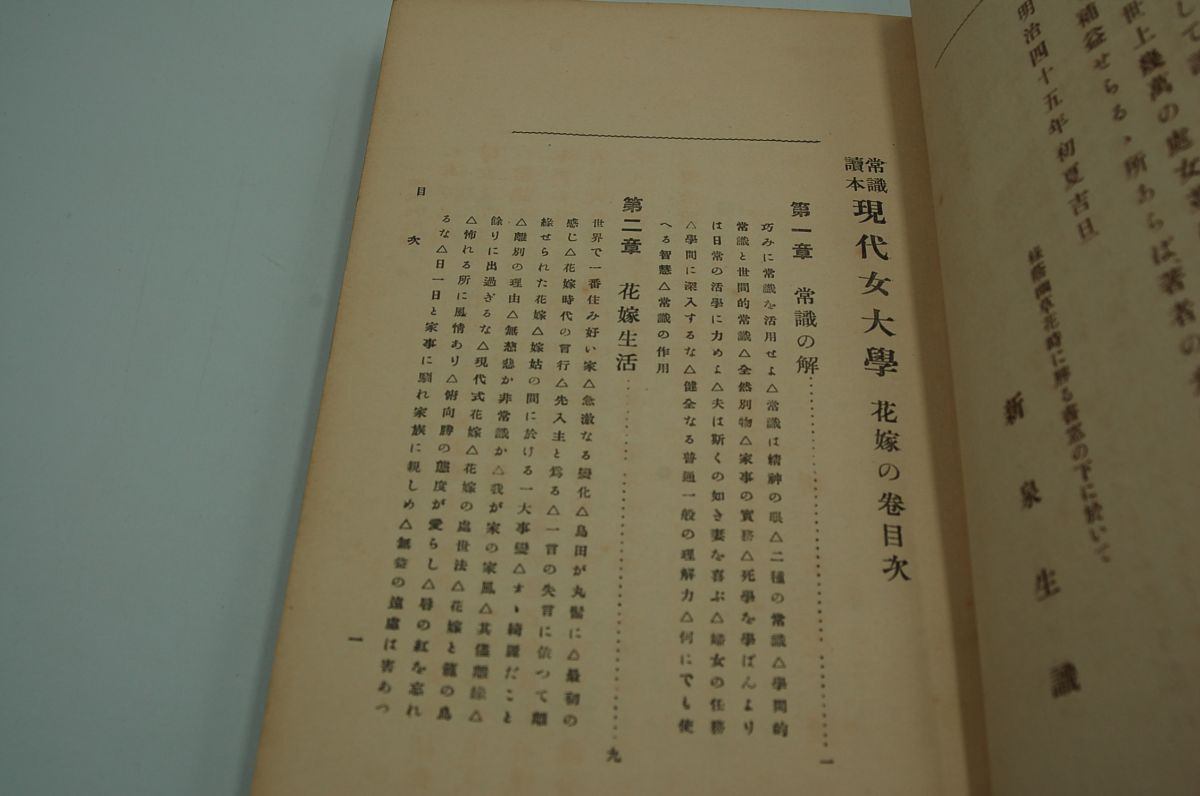 して
世上幾萬の處女
補益せらるゝ所あらば著者の
明治四十五年初夏吉日
花時に勝る書窓の下に於いて
新泉生識
常識讀本 現代女大學 花嫁の卷目次
第一章 常識の解……一
巧みに常識を活用せよ△常識は精神の眼△二種の常識△學問的
常識と世間的常識△全然別物△家事の實務△死學を學ばんより
は日常の活學に力めよ△夫は斯くの如き妻を喜ぶ△婦女の任務
△學問に深入するな△健全なる普通一般の理解力△何にでも使
へる智慧△常識の作用
第二章 花嫁生活……九
世界で一番住み好い家△急激なる變化△島田が丸髷に△最初の
感じ△花嫁時代の言行△先入主と爲る△一言の失言に依つて離
緣せられた花嫁△嫁姑の間に於ける一大事變△すゝ綺麗だこと
△離別の理由△無慈悲か非常識か△我が家の家風△其儘離緣△
餘りに出過ぎるな△現代式花嫁△花嫁の處世法△花嫁と籠の鳥
△怖れる所に風情あり△俯向勝の態度が愛らし△唇の紅を忘れ
るな△日一日と家事に馴れ家族に親しめ△無益の遠慮は害あつ
目次
一